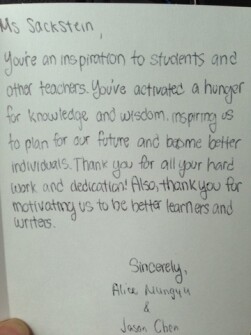 Ms Sackstein,
You're an inspiration to students and
other teachers. You've activated a hunger
for knowledge and wisdom, inspiring us
to plan for our future and become better
individuals. Thank you for all your hard
work and dedication! Also, thank you for
motivating us to be better learners and
writers.
Sincerely,
Alice
&
Jason Chen